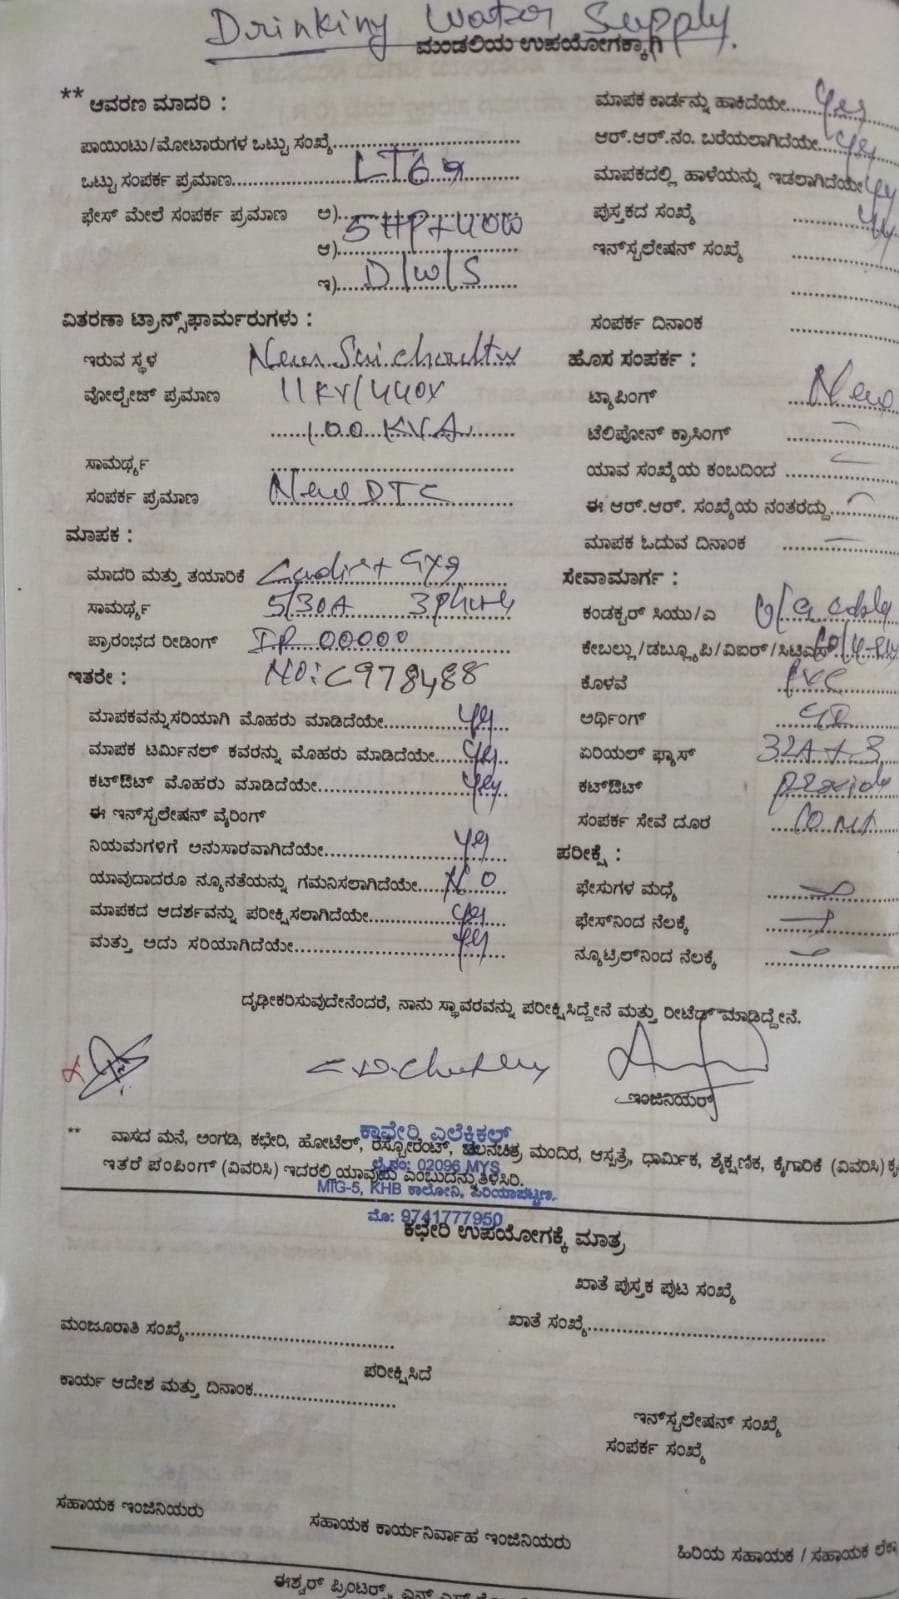 Drinking Water Supply.
ಮಂಡಲಿಯ ಉಪಯೋಗಕ್ಕಾಗಿ
** ಆವರಣ ಮಾದರಿ :
ಪಾಯಿಂಟು/ಮೋಟಾರುಗಳ ಒಟ್ಟು ಸಂಖ್ಯೆ
ಒಟ್ಟು ಸಂಪರ್ಕ ಪ್ರಮಾಣ LT6a
ಫೇಸ್ ಮೇಲೆ ಸಂಪರ್ಕ ಪ್ರಮಾಣ ಅ) 5HP+40W
ಆ)
ಇ) D/W/S
ವಿತರಣಾ ಟ್ರಾನ್ಸ್‌ಫಾರ್ಮರುಗಳು :
ಇರುವ ಸ್ಥಳ
ವೋಲ್ಟೇಜ್ ಪ್ರಮಾಣ 11KV/440V
100 KVA
ಸಾಮರ್ಥ್ಯ
ಸಂಪರ್ಕ ಪ್ರಮಾಣ New DTC
ಮಾಪಕ :
ಮಾದರಿ ಮತ್ತು ತಯಾರಿಕೆ
ಸಾಮರ್ಥ್ಯ 5/30A 3phase
ಪ್ರಾರಂಭದ ರೀಡಿಂಗ್ IR 00000
ಇತರೇ : NO: C978488
ಮಾಪಕವನ್ನು ಸರಿಯಾಗಿ ಮೊಹರು ಮಾಡಿದೆಯೇ yes
ಮಾಪಕ ಟರ್ಮಿನಲ್ ಕವರನ್ನು ಮೊಹರು ಮಾಡಿದೆಯೇ yes
ಕಟ್‌ಔಟ್ ಮೊಹರು ಮಾಡಿದೆಯೇ yes
ಈ ಇನ್‌ಸ್ಟಲೇಷನ್ ವೈರಿಂಗ್
ನಿಯಮಗಳಿಗೆ ಅನುಸಾರವಾಗಿದೆಯೇ yes
ಯಾವುದಾದರೂ ನ್ಯೂನತೆಯನ್ನು ಗಮನಿಸಲಾಗಿದೆಯೇ NO
ಮಾಪಕದ ಆದರ್ಶವನ್ನು ಪರೀಕ್ಷಿಸಲಾಗಿದೆಯೇ yes
ಮತ್ತು ಅದು ಸರಿಯಾಗಿದೆಯೇ yes
ಮಾಪಕ ಕಾರ್ಡನ್ನು ಹಾಕಿದೆಯೇ yes
ಆರ್.ಆರ್.ನಂ. ಬರೆಯಲಾಗಿದೆಯೇ yes
ಮಾಪಕದಲ್ಲಿ ಹಾಳೆಯನ್ನು ಇಡಲಾಗಿದೆಯೇ yes
ಪುಸ್ತಕದ ಸಂಖ್ಯೆ yes
ಇನ್‌ಸ್ಟಲೇಷನ್ ಸಂಖ್ಯೆ
ಸಂಪರ್ಕ ದಿನಾಂಕ
ಹೊಸ ಸಂಪರ್ಕ :
ಟ್ಯಾಪಿಂಗ್ New
ಟೆಲಿಪೋನ್ ಕ್ರಾಸಿಂಗ್
ಯಾವ ಸಂಖ್ಯೆಯ ಕಂಬದಿಂದ
ಈ ಆರ್.ಆರ್. ಸಂಖ್ಯೆಯ ನಂತರದ್ದು
ಮಾಪಕ ಓದುವ ದಿನಾಂಕ
ಸೇವಾಮಾರ್ಗ :
ಕಂಡಕ್ಟರ್ ಸಿಯು/ಎ
ಕೇಬಲ್ಲು/ಡಬ್ಲ್ಯೂಪಿ/ವಿಐರ್/ಸಿಟಿಎಸ್
ಕೊಳವೆ PVC
ಅರ್ಥಿಂಗ್
ಏರಿಯಲ್ ಫ್ಯೂಸ್ 32A x 3
ಕಟ್‌ಔಟ್ provide
ಸಂಪರ್ಕ ಸೇವೆ ದೂರ 10 Mt
ಪರೀಕ್ಷೆ :
ಫೇಸುಗಳ ಮಧ್ಯೆ
ಫೇಸ್‌ನಿಂದ ನೆಲಕ್ಕೆ
ನ್ಯೂಟ್ರಿಲ್‌ನಿಂದ ನೆಲಕ್ಕೆ
ದೃಢೀಕರಿಸುವುದೇನೆಂದರೆ, ನಾನು ಸ್ಥಾವರವನ್ನು ಪರೀಕ್ಷಿಸಿದ್ದೇನೆ ಮತ್ತು ರೀಟೆಡ್ ಮಾಡಿದ್ದೇನೆ.
ಇಂಜಿನಿಯರ್
ಕಾವೇರಿ ಎಲೆಕ್ಟ್ರಿಕಲ್
** ವಾಸದ ಮನೆ, ಅಂಗಡಿ, ಕಛೇರಿ, ಹೋಟೆಲ್, ರೆಸ್ಟೋರೆಂಟ್, ಚಲನಚಿತ್ರ ಮಂದಿರ, ಆಸ್ಪತ್ರೆ, ಧಾರ್ಮಿಕ, ಶೈಕ್ಷಣಿಕ, ಕೈಗಾರಿಕೆ (ವಿವರಿಸಿ)
ಲೈ.ನಂ: 02096 MYS
ಇತರೆ ಪಂಪಿಂಗ್ (ವಿವರಿಸಿ) ಇದರಲ್ಲಿ ಯಾವುದು ಎಂಬುದನ್ನು ತಿಳಿಸಿರಿ.
MIG-5, KHB ಕಾಲೋನಿ, ಪಿರಿಯಾಪಟ್ಟಣ.
ಮೊ: 9741777950
ಕಛೇರಿ ಉಪಯೋಗಕ್ಕೆ ಮಾತ್ರ
ಖಾತೆ ಪುಸ್ತಕ ಪುಟ ಸಂಖ್ಯೆ
ಮಂಜೂರಾತಿ ಸಂಖ್ಯೆ ಖಾತೆ ಸಂಖ್ಯೆ
ಪರೀಕ್ಷಿಸಿದೆ
ಕಾರ್ಯ ಆದೇಶ ಮತ್ತು ದಿನಾಂಕ
ಇನ್‌ಸ್ಟಲೇಷನ್ ಸಂಖ್ಯೆ
ಸಂಪರ್ಕ ಸಂಖ್ಯೆ
ಸಹಾಯಕ ಇಂಜಿನಿಯರು
ಸಹಾಯಕ ಕಾರ್ಯನಿರ್ವಾಹ ಇಂಜಿನಿಯರು
ಹಿರಿಯ ಸಹಾಯಕ / ಸಹಾಯಕ
ಈಶ್ವರ್ ಪ್ರಿಂಟರ್ಸ್,